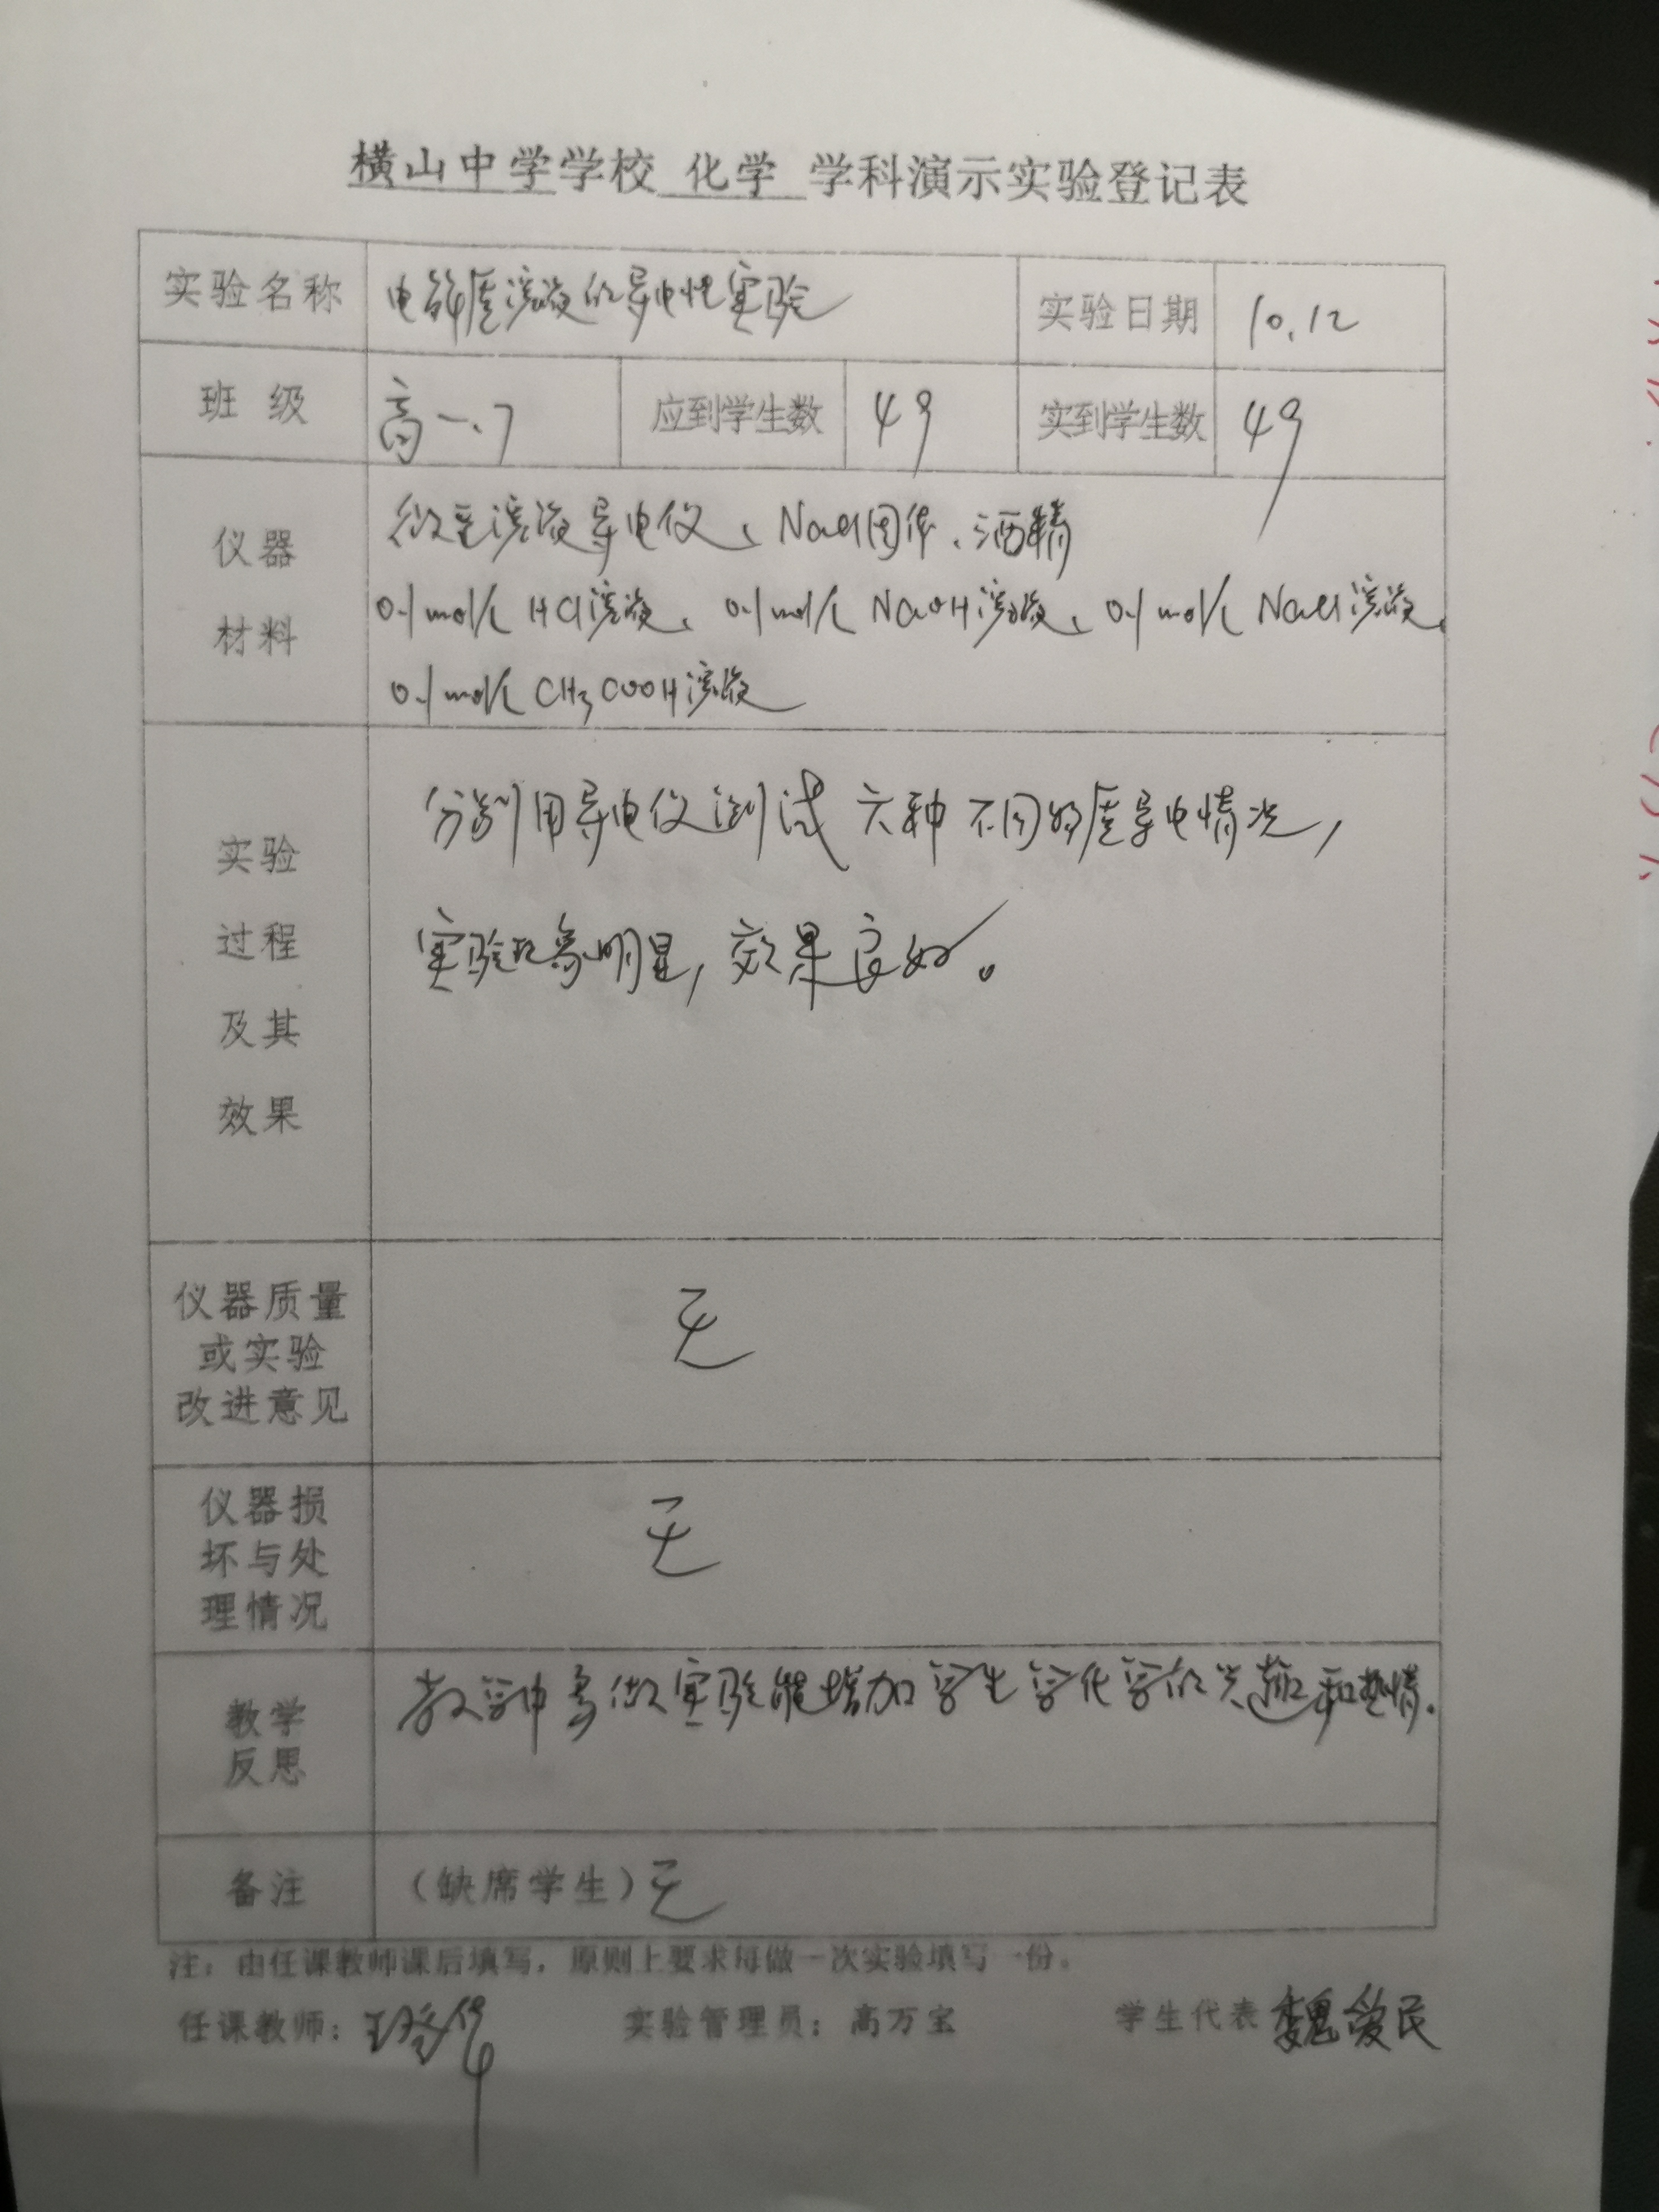 横山中学学校 化学 学科演示实验登记表
实验名称 电解质溶液的导电性实验 实验日期 10.12
班 级 高一.7 应到学生数 49 实到学生数 49
仪器
材料
溶液导电仪、NaCl固体、酒精
0.1mol/L HCl溶液、0.1mol/L NaOH溶液、0.1mol/L NaCl溶液、
0.1mol/L CH3COOH溶液
实验
过程
及其
效果
分别用导电仪测试六种不同物质导电情况,
实验现象明显,效果良好。
仪器质量
或实验
改进意见
无
仪器损
坏与处
理情况
无
教学
反思
教学中多做实验能增加学生学化学的兴趣和热情.
备注 (缺席学生)无
注:由任课教师课后填写,原则上要求每做一次实验填写一份。
任课教师: 实验管理员:高万宝 学生代表 魏爱民